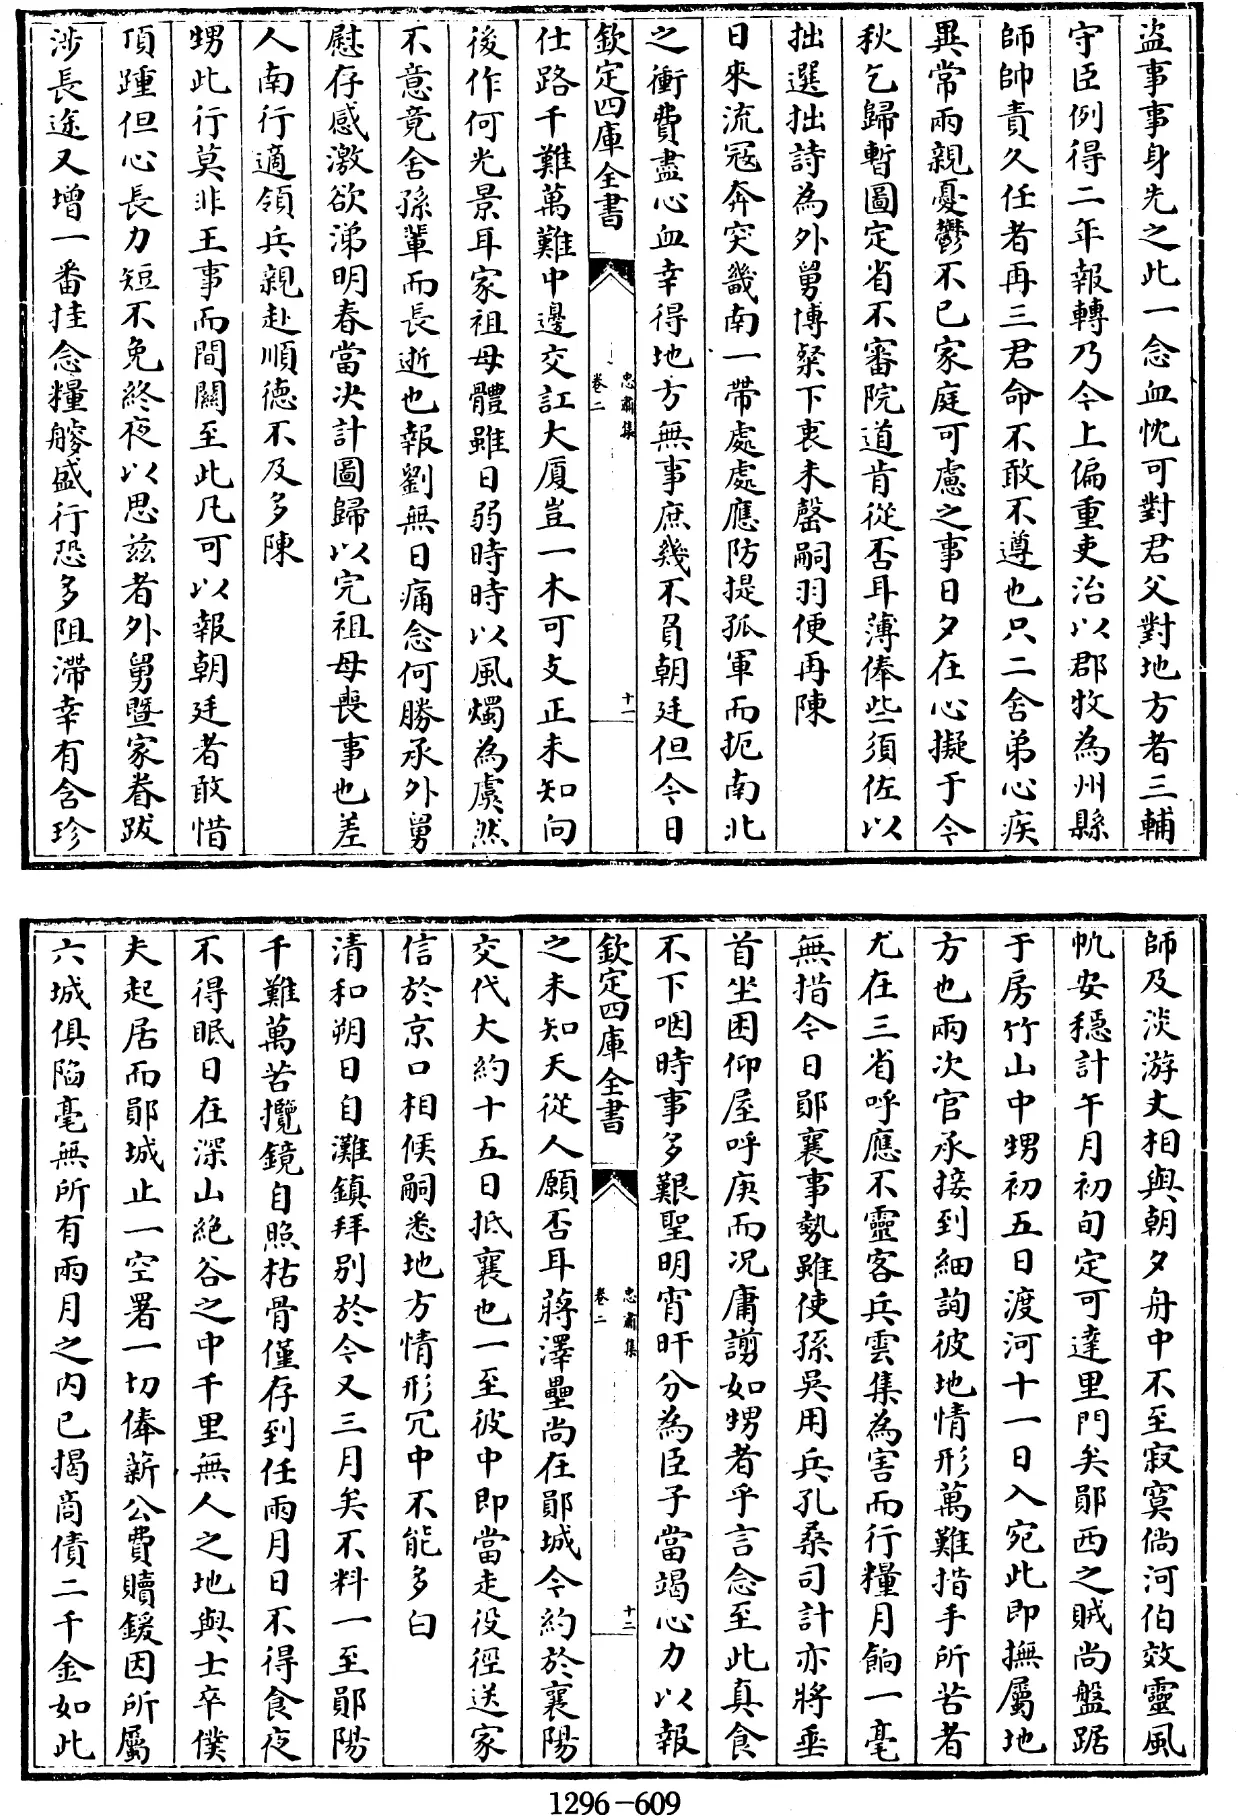 盜事事身先之此一念血忱可對君父對地方者三輔
守臣例得二年報轉乃今上偏重吏治以郡牧為州縣
師帥責久任者再三君命不敢不遵也只二舍弟心疾
異常兩親憂鬱不已家庭可慮之事日夕在心擬于今
秋乞歸暫圖定省不審院道肯從否耳薄俸些須佐以
拙選拙詩為外舅博粲下衷未罄嗣羽便再陳
日來流寇奔突畿南一帶處處應防提孤軍而扼南北
之衝費盡心血幸得地方無事庶幾不負朝廷但今日
欽定四庫全書
忠肅集
卷二
十一
仕路千難萬難中邊交訌大厦豈一木可支正未知向
後作何光景耳家祖母體雖日弱時時以風燭為虞然
不意竟舍孫輩而長逝也報劉無日痛念何勝承外舅
慰存感激欲涕明春當决計圖歸以完祖母喪事也差
人南行適領兵親赴順德不及多陳
甥此行莫非王事而間關至此凡可以報朝廷者敢惜
頂踵但心長力短不免終夜以思兹者外舅暨家眷跋
涉長途又增一番挂念糧艘盛行恐多阻滯幸有含珍
師及淡游丈相與朝夕舟中不至寂寞倘河伯效靈風
帆安穩計午月初旬定可達里門矣鄖西之賊尚盤踞
于房竹山中甥初五日渡河十一日入宛此即撫屬地
方也兩次官承接到細詢彼地情形萬難措手所苦者
尤在三省呼應不靈客兵雲集為害而行糧月餉一毫
無措今日鄖襄事勢雖使孫吳用兵孔桑司計亦將垂
首坐困仰屋呼庚而况庸謭如甥者乎言念至此真食
不下咽時事多艱聖明宵旰分為臣子當竭心力以報
欽定四庫全書
忠肅集
卷二
十二
之未知天從人願否耳蔣澤壘尚在鄖城今約於襄陽
交代大約十五日抵襄也一至彼中即當走役徑送家
信於京口相候嗣悉地方情形冗中不能多白
清和朔日自灘鎮拜別於今又三月矣不料一至鄖陽
千難萬苦攬鏡自照枯骨僅存到任兩月日不得食夜
不得眠日在深山絕谷之中千里無人之地與士卒僕
夫起居而鄖城止一空署一切俸薪公費贖鍰因所屬
六城俱陷毫無所有兩月之内已揭啇債二千金如此
1296-609